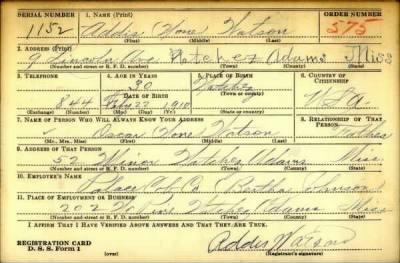 SERIAL NUMBER 1. NAME (Print) ORDER NUMBER
1152 Addis (None) Watson 575
(First) (Middle) (Last)
2. ADDRESS (Print)
9 Lincoln Ave Natchez Adams Miss
(Number and street or R. F. D. number) (Town) (County) (State)
3. TELEPHONE 4. AGE IN YEARS 5. PLACE OF BIRTH 6. COUNTRY OF CITIZENSHIP
30 Natchez
DATE OF BIRTH (Town or county)
844 Feby 22 1910 Miss U.S.A.
(Exchange) (Number) (Mo.) (Day) (Yr.) (State or country)
7. NAME OF PERSON WHO WILL ALWAYS KNOW YOUR ADDRESS 8. RELATIONSHIP OF THAT PERSON
Oscar (None) Watson Father
(Mr., Mrs., Miss) (First) (Middle) (Last)
9. ADDRESS OF THAT PERSON
52 Minor Natchez Adams Miss.
(Number and street or R. F. D. number) (Town) (County) (State)
10. EMPLOYER'S NAME
Palace Bertha
11. PLACE OF EMPLOYMENT OR BUSINESS
202 Pine Natchez Adams Miss
(Number and street or R. F. D. number) (Town) (County) (State)
I AFFIRM THAT I HAVE VERIFIED ABOVE ANSWERS AND THAT THEY ARE TRUE.
Addis Watson
REGISTRATION CARD
D. S. S. Form 1 (Registrant's signature)